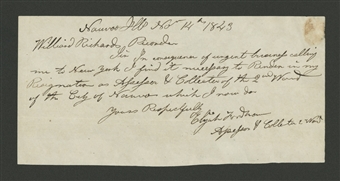 Nauvoo Ill Nov 14th 1843
Willard Richards Recorder
Sir In consequence of urgent business calling
me to New York I find it necessary to Render in my
Resignation as Assessor & Collector of the 2nd Ward
of the City of Nauvoo which I now do
Yours Respectfully
Elijah Fordham
Assessor & Collector 2 Ward